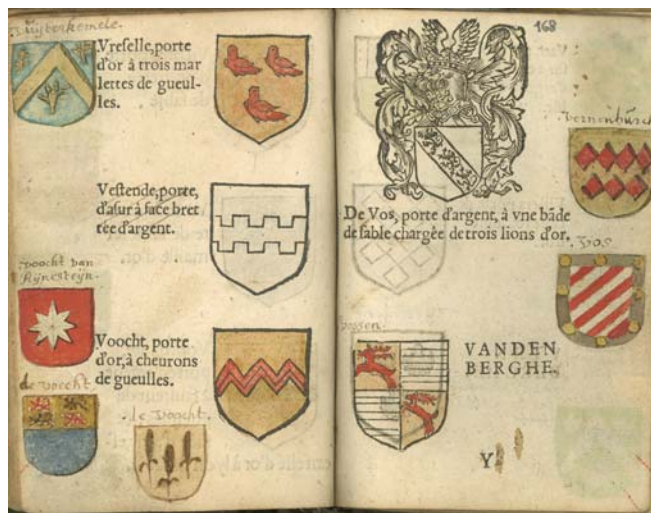 Vreselle, porte
d'or à trois mar
lettes de gueul-
les.
Vestende, porte,
d'asur à face bret
tée d'argent.
voocht van
Rijnesteijn.
Voocht, porte
d'or, à cheurons
de gueulles.
de voocht
de voocht
168
De Vos, porte d'argent, à vne bāde
de sable chargée de trois lions d'or.
vos
vossen
VANDEN
BERGHE,
Y